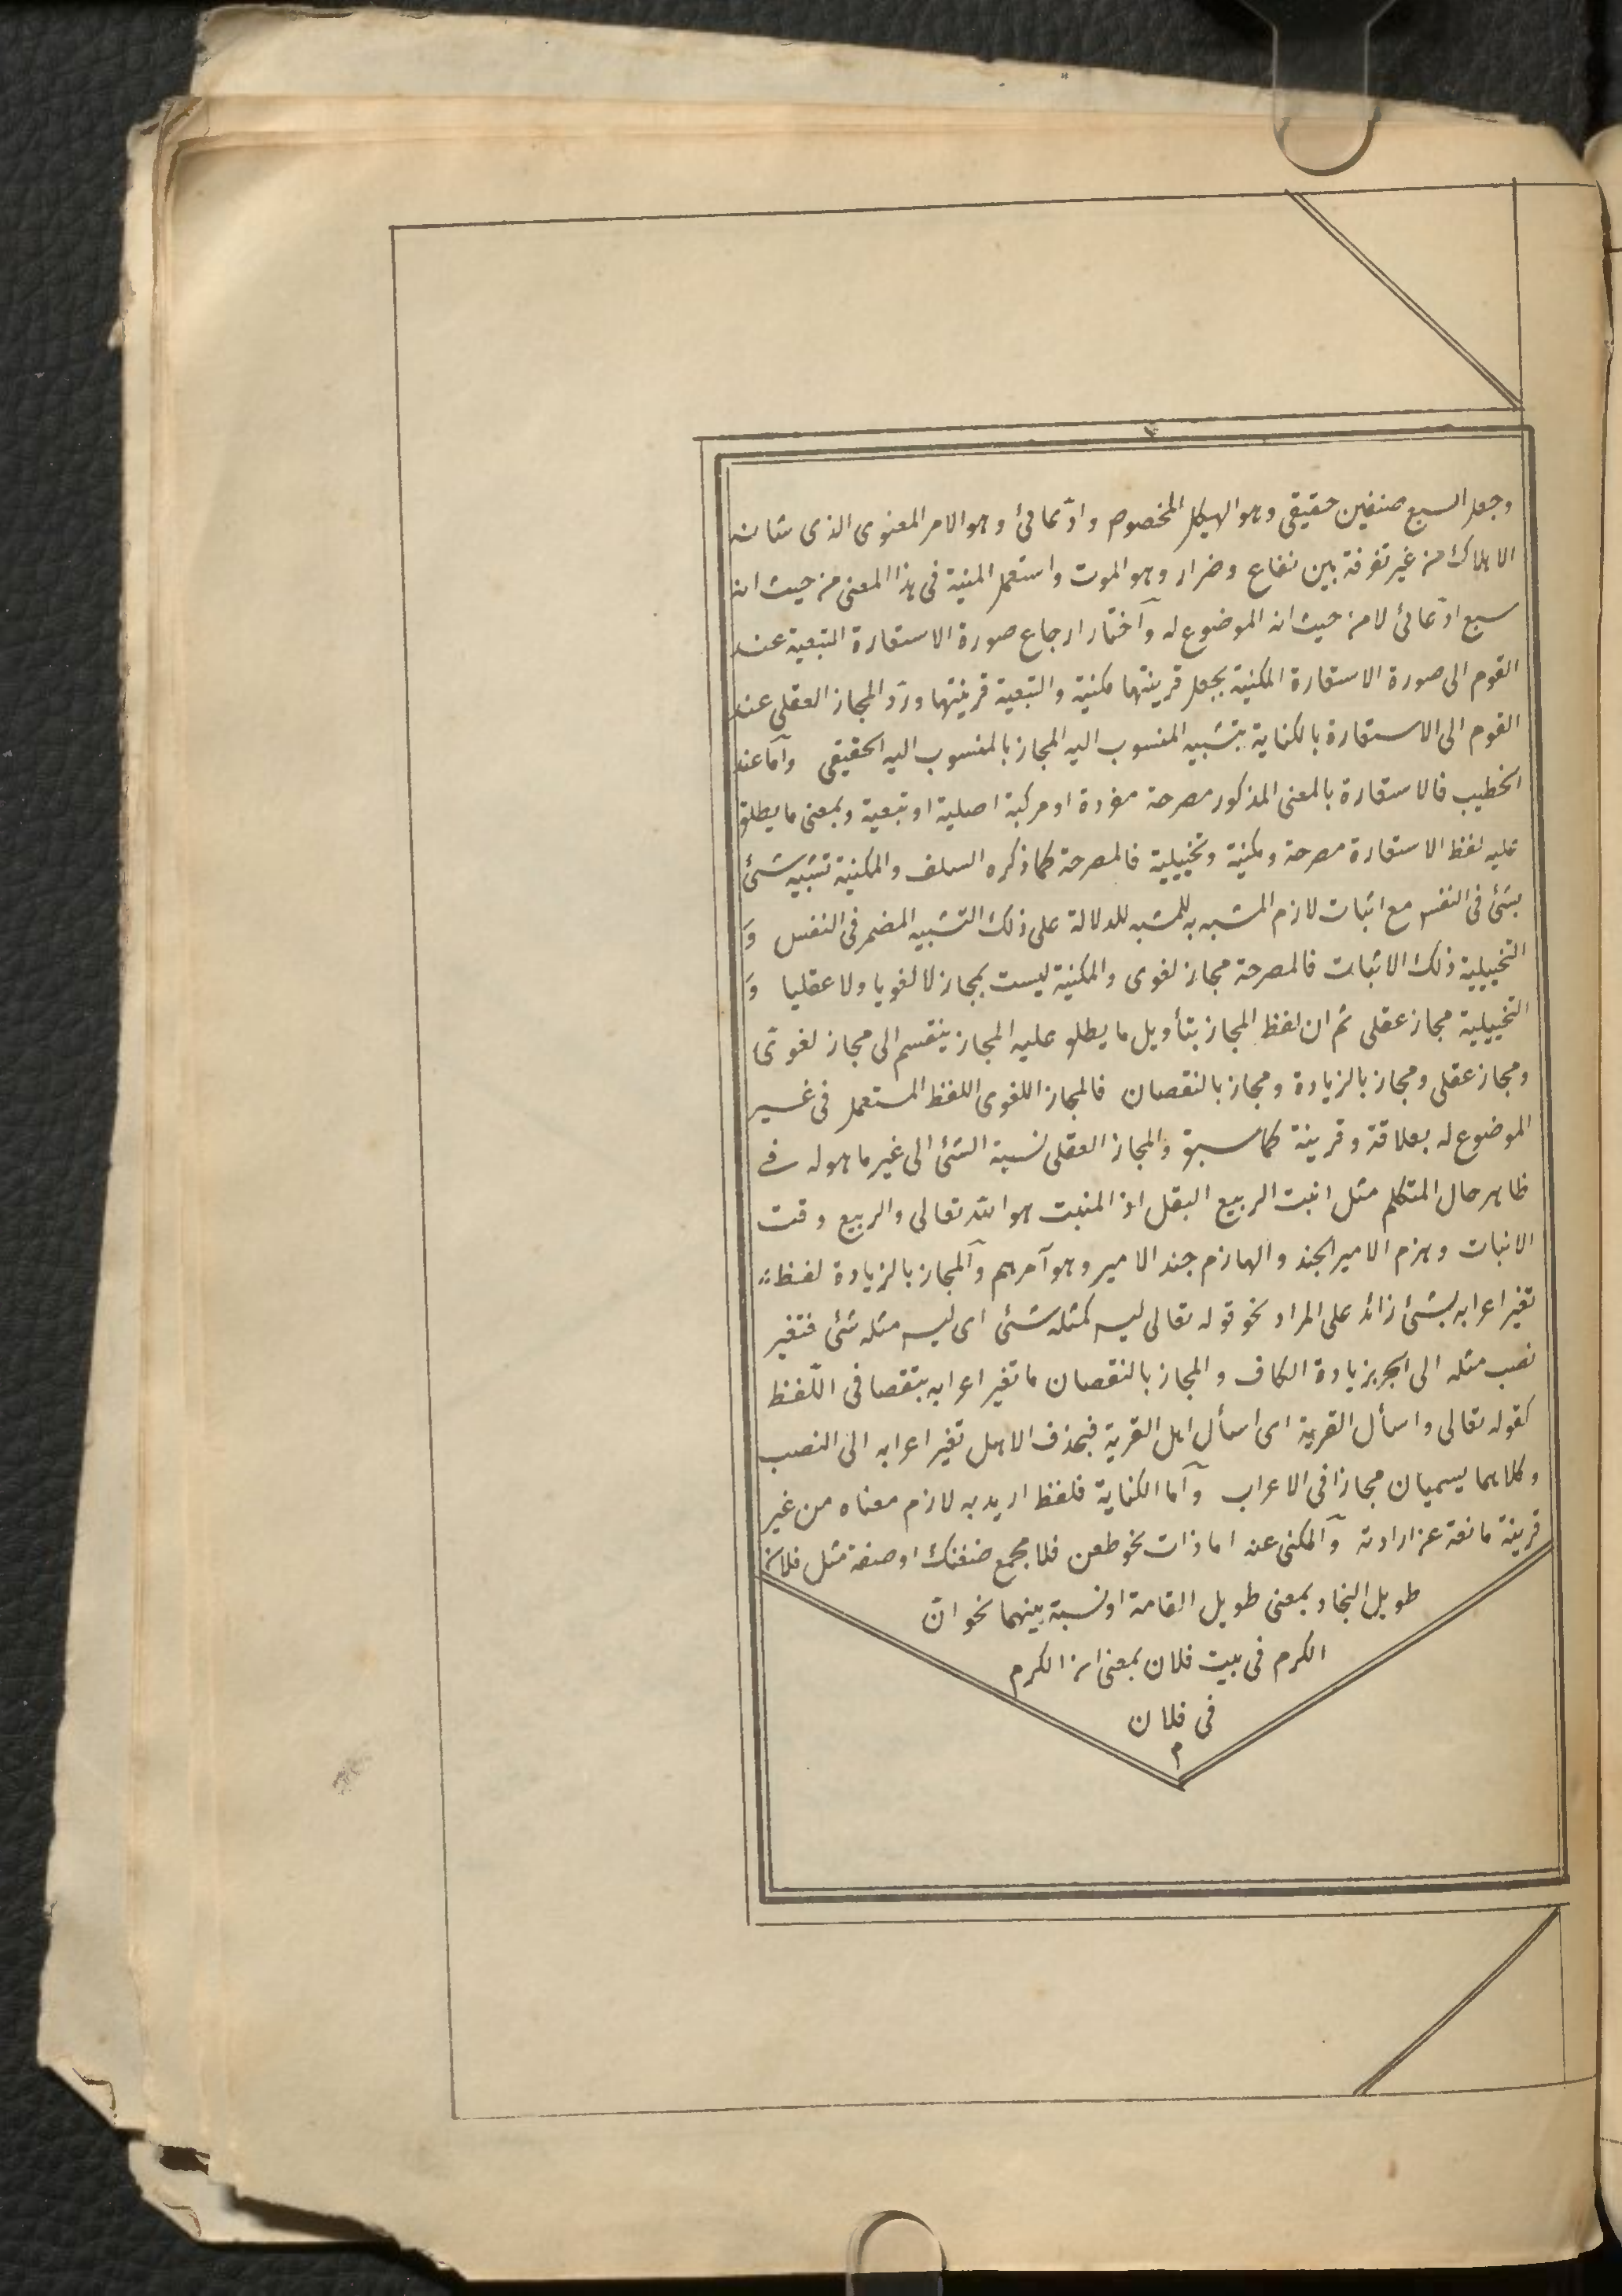 وجعل السبع صنفين حقيقى وهو الهيكل المخصوص وادّعائى وهو الامر المعنوى الذى شانه
الاهلاك من غير تفرقة بين نفاع وضرار وهو الموت واستعمل المنية فى هذا المعنى من حيث انه
سبع ادّعائى لا من حيث انه الموضوع له وآختار ارجاع صورة الاستعارة التبعية عند
القوم الى صورة الاستعارة المكنية بجعل قرينتها مكنية والتبعية قرينتها وردّ المجاز العقلى عند
القوم الى الاستعارة بالكناية بتشبيه المنسوب اليه المجاز بالمنسوب اليه الحقيقى وآما عند
الخطيب فالاستعارة بالمعنى المذكور مصرحة مفردة او مركبة اصلية او تبعية وبمعنى ما يطلق
عليه لفظ الاستعارة مصرحة ومكنية وتخييلية فالمصرحة كما ذكره السلف والمكنية تشبيه شئ
بشئ فى النفس مع اثبات لازم المشبه به للمشبه للدلالة على ذلك التشبيه المضمر فى النفس وَ
التخييلية ذلك الاثبات فالمصرحة مجاز لغوى والمكنية ليست بمجاز لا لغويا ولا عقليا وَ
التخييلية مجاز عقلى ثم ان لفظ المجاز بتأويل ما يطلق عليه المجاز ينقسم الى مجاز لغوىّ
ومجاز عقلى ومجاز بالزيادة ومجاز بالنقصان فالمجاز اللغوى اللفظ المستعمل فى غير
الموضوع له بعلاقة وقرينة كما سبق والمجاز العقلى نسبة الشئ الى غير ما هو له فى
ظاهر حال المتكلم مثل انبت الربيع البقل اذ المنبت هو الله تعالى والربيع وقت
الانبات وهزم الامير الجند والهازم جند الامير وهو آمرهم وآلمجاز بالزيادة لفظ
تغير اعرابه بشئ زائد على المراد نحو قوله تعالى ليس كمثله شئ اى ليس مثله شئ فتغير
نصب مثله الى الجر بزيادة الكاف والمجاز بالنقصان ما تغير اعرابه بنقصا فى اللّفظ
كقوله تعالى واسأل القرية اى اسأل اهل القرية فبحذف الاهل تغير اعرابه الى النصب
وكلاهما يسميان مجازا فى الاعراب وآما الكناية فلفظ اريد به لازم معناه من غير
قرينة مانعة عن ارادته وآلمكنى عنه اما ذات نحو طعن فلا مجمع ضغنك او صفة مثل فلان
طويل النجاد بمعنى طويل القامة او نسبة بينهما نحو انّ
الكرم فى بيت فلان بمعنى ان الكرم
فى فلان
م